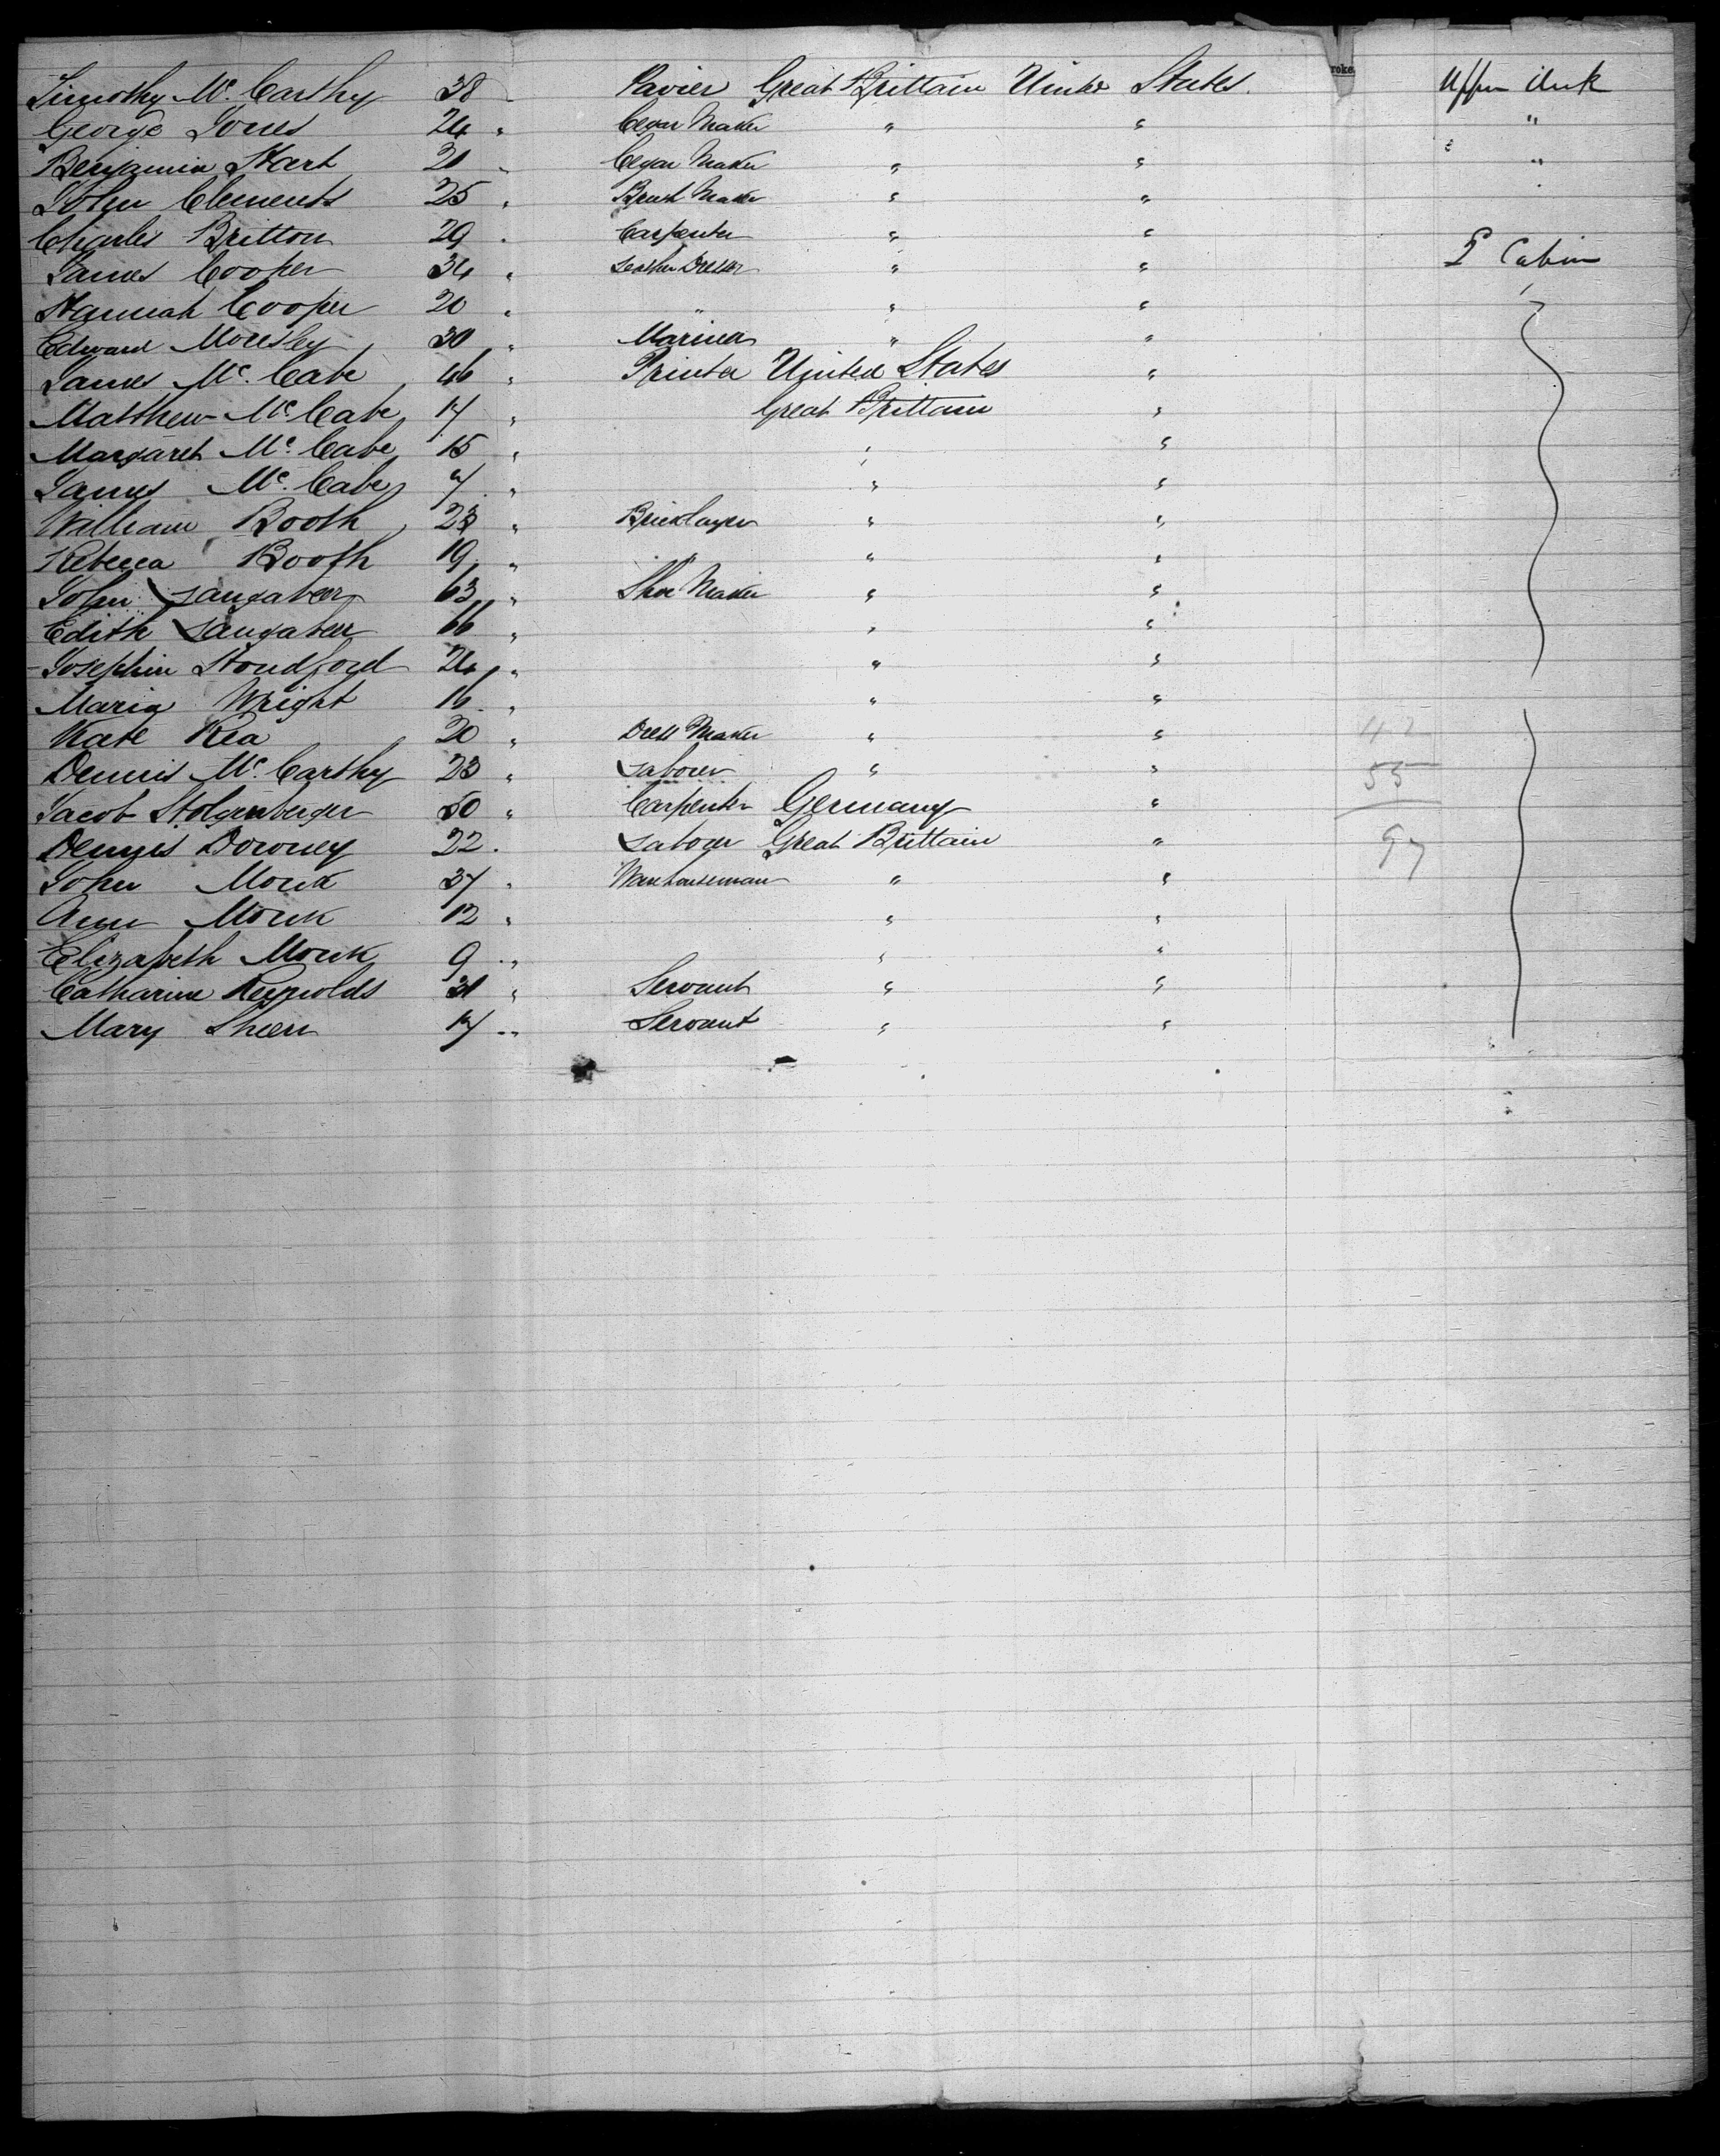 Timothy Mc. Carthy 38 " Pavier Great Brittain United States. Upper deck
George Jones 24 " Cegar Maker " " "
Benjamin Hart 21 " Cegar Maker " " "
John Clements 25 " Brush Maker " "
Charles Britton 29 " Carpenter " "
James Cooper 34 " Leather Dresser " " Cabin
Hannah Cooper 20 " " " "
Edward Mousley 30 " Mariner " "
James Mc. Cabe 46 " Printer United States "
Matthew Mc. Cabe 17 " Great Brittain "
Margaret Mc. Cabe 15 " " "
James Mc. Cabe 7 " " "
William Booth 23 " Bricklayer " "
Rebecca Booth 19 " " "
John Langabeer 63 " Shoe Maker " "
Edith Langabeer 66 " " "
Josephin Standford 24 " " "
Maria Wright 16 " " "
Kate Rea 20 " Dress Maker " " 42
Dennis Mc. Carthy 23 " Laborer " " 55
Jacob Stolgenberger 50 " Carpenter Germany "
Dennis Downey 22 . Laborer Great Brittain " 97
John Monk 37 " Warehouseman " "
Ann Monk 12 " " "
Elizabeth Monk 9 " " "
Catharine Reynolds 31 " Servant " "
Mary Sheen 17 " Servant " "